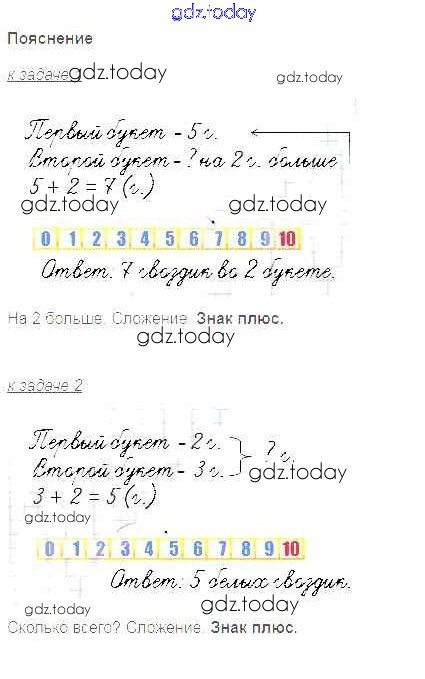 gdz.today
Пояснение
к задаче gdz.today
gdz.today
Первый букет - 5 г.
Второй букет - ? на 2 г. больше
5 + 2 = 7 (г.)
gdz.today gdz.today
0 1 2 3 4 5 6 7 8 9 10
Ответ: 7 гвоздик во 2 букете.
На 2 больше. Сложение. Знак плюс.
gdz.today
к задаче 2
Первый букет - 2 г.
Второй букет - 3 г. ? г.
gdz.today
3 + 2 = 5 (г.)
gdz.today
0 1 2 3 4 5 6 7 8 9 10
Ответ: 5 белых гвоздик.
gdz.today gdz.today
Сколько всего? Сложение. Знак плюс.